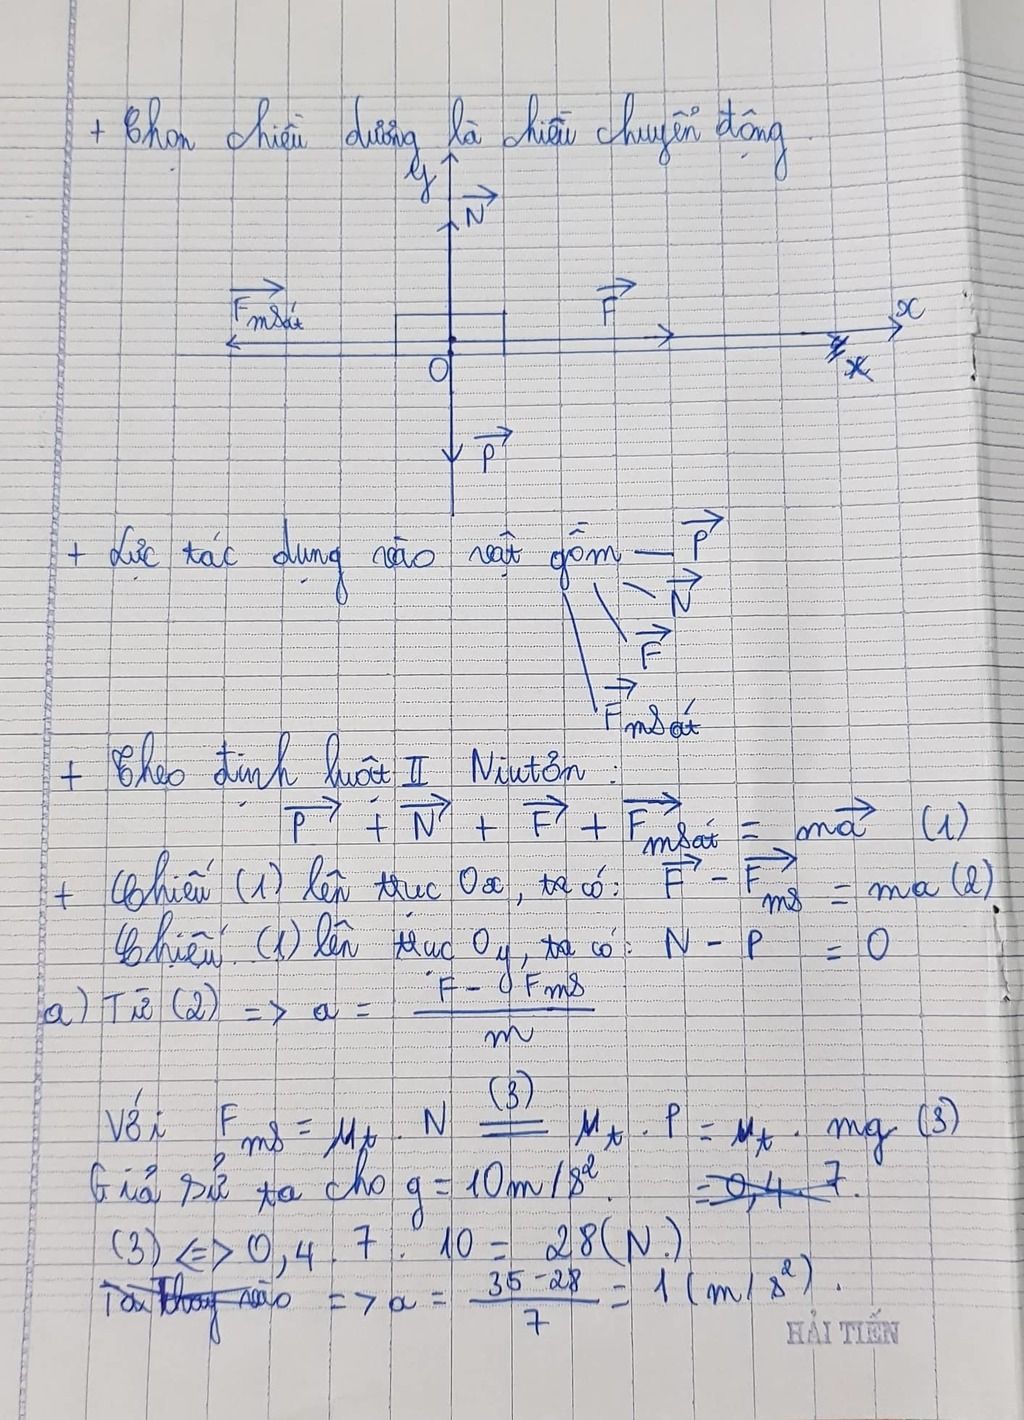 + Chọn chiều dương là chiều chuyển động.
y
N
Fmsát
F
x
O
x
P
+ Lực tác dụng vào vật gồm P
N
F
Fmsát
+ Theo định luật II Niutơn:
P + N + F + Fmsát = ma (1)
+ Chiếu (1) lên trục Ox, ta có: F - Fms = ma (2)
Chiếu (1) lên trục Oy, ta có: N - P = 0
a) Từ (2) => a = F - Fms / m
Với Fms = μt . N (3)= μt . P = μt . mg (3)
Giả sử ta cho g = 10m/s². = 0,4 . 7.
(3) <=> 0,4 . 7 . 10 = 28 (N.)
Ta thay vào => a = 35 - 28 / 7 = 1 (m/s²).
HẢI TIẾN